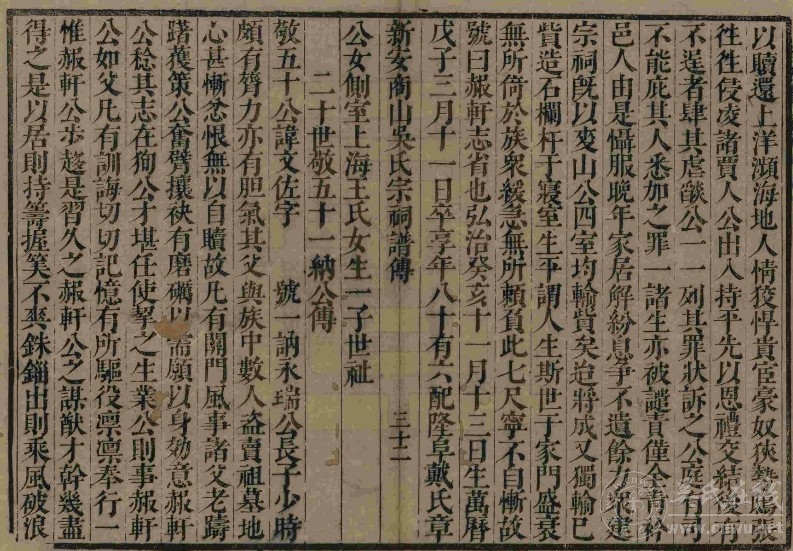 以贖還上洋瀕海地人情狡悍貴宦豪奴狹勢鷹
徃徃侵凌諸賈人公出入持平先以恩禮交結後有
不逞者肆其虐燄公一一列其罪狀訴之公庭有司
不能庇其人悉加之罪一諸生亦被譴責僅全青衿
邑人由是懾服晚年家居解紛息爭不遺餘力衆建
宗祠旣以变山公四室均輸貲矣迨將成又獨輸已
貲造石欄杆于寢室生平謂人生斯世于家門盛衰
無所倚於族衆緩急無所賴負此七尺寧不自慚故
號曰赧軒志省也弘治癸亥十一月十三日生萬曆
戊子三月十一日卒享年八十有六配隆阜戴氏章
新安商山吳氏宗祠譜傳 三十二
公女側室上海王氏女生一子世祉
二十世敬五十一納公傳
敬五十公諱文佐字 號一訥永瑞公長子少時
頗有膂力亦有胆氣其父與族中數人盗賣祖墓地
心甚慚忿恨無以自贖故凡有關門風事諸父老躊
躇蒦策公奮臂攘袂有磨礪以需願以身効意赧軒
公稔其志在狥公才堪任使挈之生業公則事赧軒
公如父凡有訓誨切切記憶有所驅役凛凛奉行一
惟赧軒公步趨是習久之赧軒公之謀猷才幹幾盡
得之是以居則持籌握筭不爽銖錙出則乘風破浪